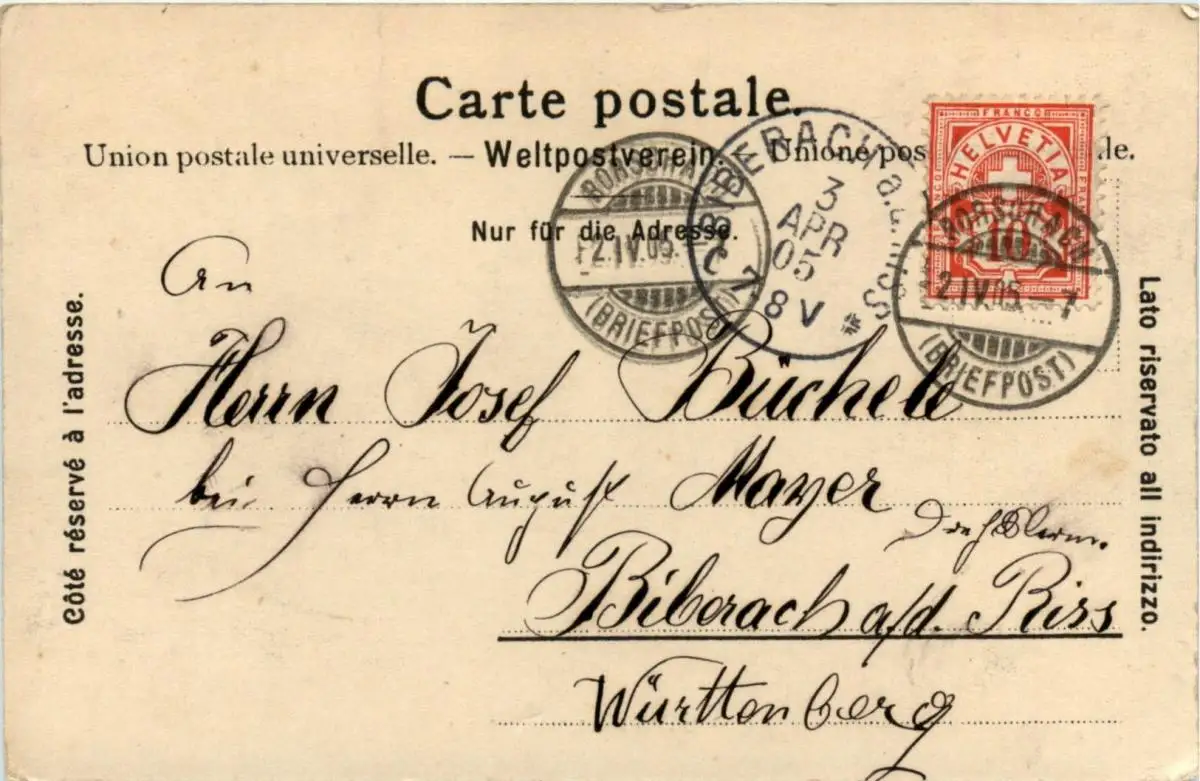 Carte postale.
Union postale universelle. — Weltpostverein. — Unione pos le.
Nur für die Adresse.
FRANCO
HELVETIA
10
RORSCHACH
2.IV.05.–7
(BRIEFPOST)
RORSCHACH
2.IV.05.–7
(BRIEFPOST)
BIBERACH a.d.
3
APR
05
7 8 V
Côté réservé à l'adresse.
Lato riservato all indirizzo.
An
Herrn Josef Büchele
bei Herrn August Mayer
Biberach a/d. Riss
Württenberg